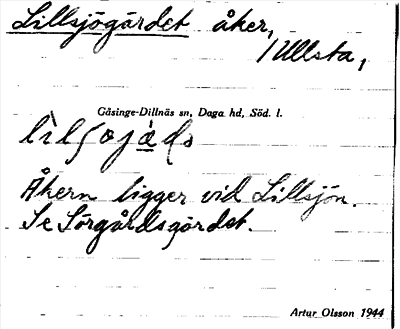 Lillsjögärdet åker,
/Ullsta,
Gåsinge-Dillnäs sn, Daga hd, Söd. l.
Åkern ligger vid Lillsjön.
Se Sörgårdsgärdet.
Artur Olsson 1944